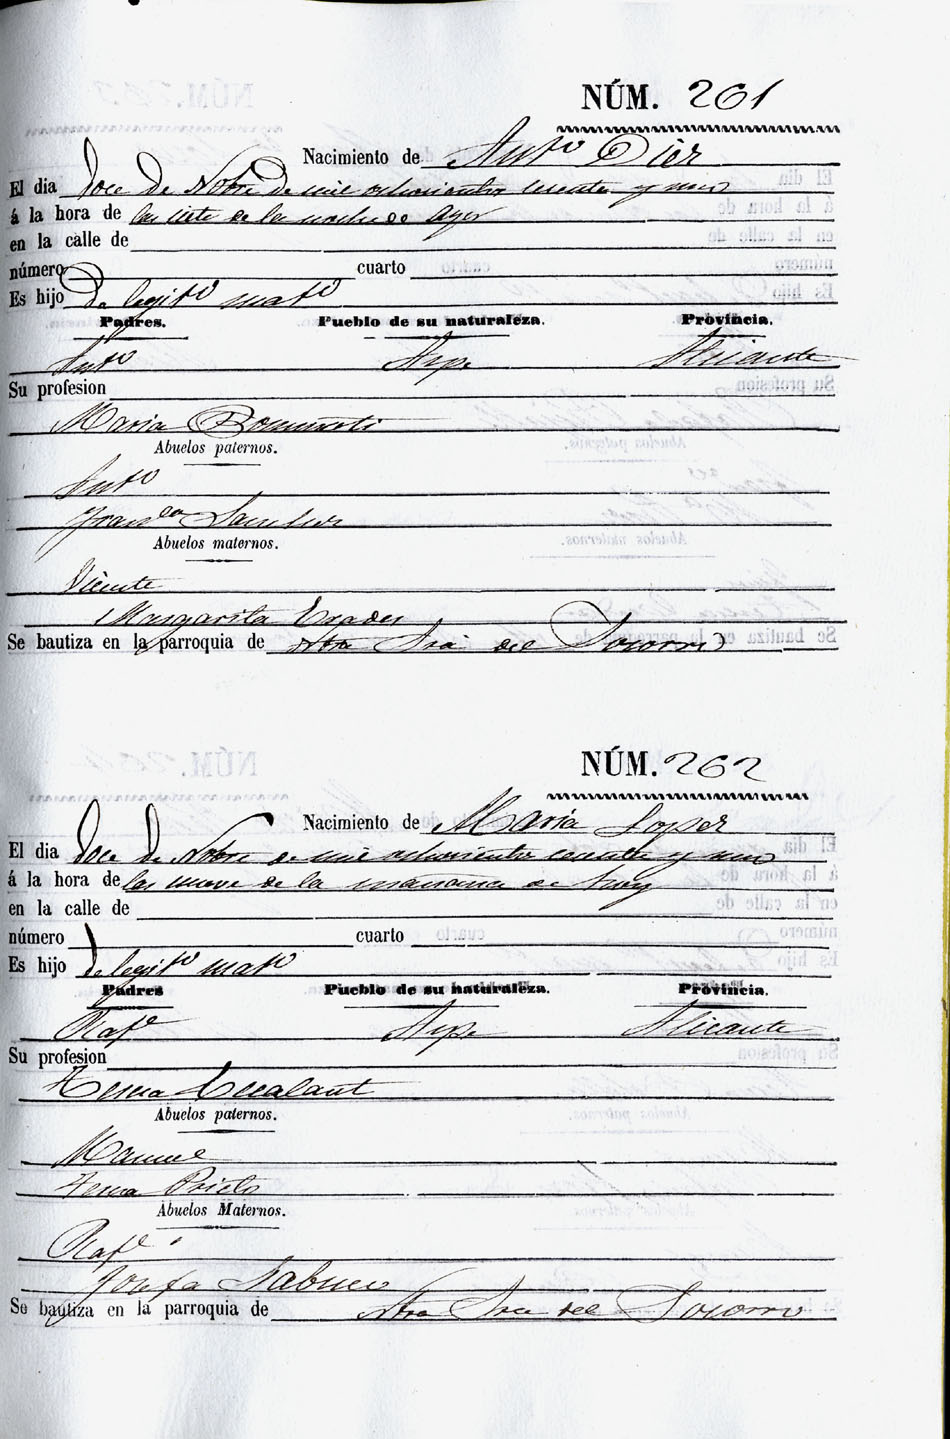 NÚM. 261
Nacimiento de Antº Dier
El dia doce de Nobre de mil ochocientos sesenta y uno
á la hora de las siete de la noche de Ayer
en la calle de
número cuarto
Es hijo de legitº matº
Padres. Pueblo de su naturaleza. Provincia.
Antº Aspe Alicante
Su profesion
Maria
Abuelos paternos.
Antº
Franca Sanchez
Abuelos maternos.
Vicente
Margarita Erades
Se bautiza en la parroquia de Ntra Sra del Socorro
NÚM. 262
Nacimiento de María Lopez
El dia doce de Nobre de mil ochocientos sesenta y uno
á la hora de las nueve de la mañana de hoy
en la calle de
número cuarto
Es hijo de legitº matº
Padres Pueblo de su naturaleza. Provincia.
Rafl Aspe Alicante
Su profesion
Teresa
Abuelos paternos.
Manuel
Teresa Prieto
Abuelos Maternos.
Rafl
Josefa
Se bautiza en la parroquia de Ntra Sra del Socorro